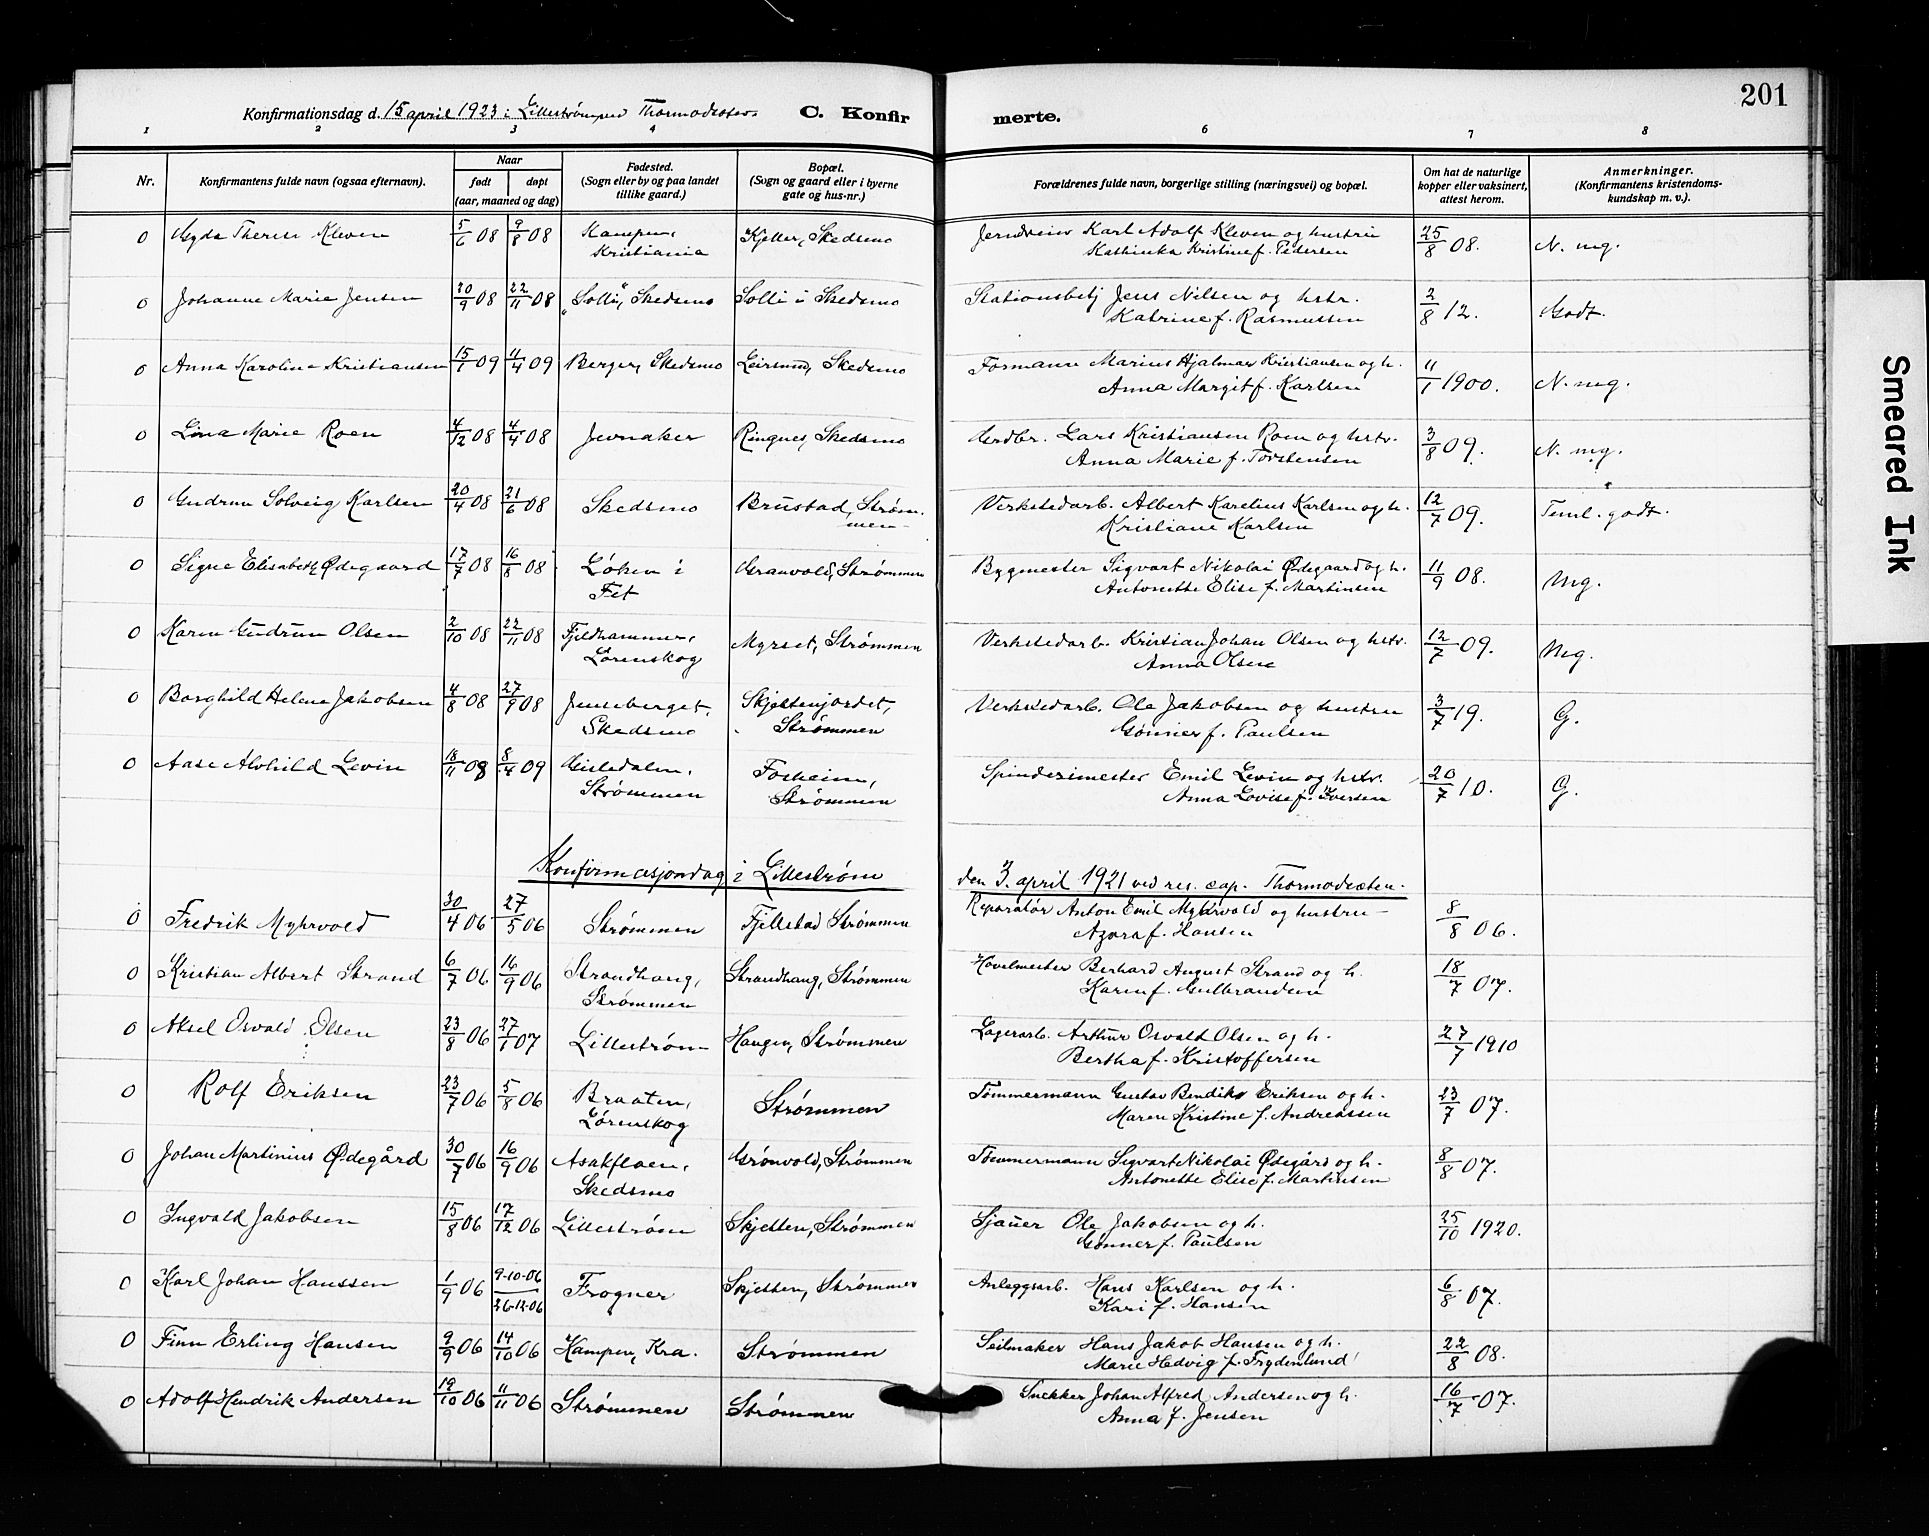 201
Konfirmationsdag d. 15 april 1923 i Lillestrøm ved Thormodsæter. C. Konfirmerte.
1 2 3 4 6 7 8
Nr. Konfirmantens fulde navn (ogsaa efternavn). Naar født døpt (aar, maaned og dag) Fødested. (Sogn eller by og paa landet tillike gaard.) Bopæl. (Sogn og gaard eller i byerne gate og hus-nr.) Forældrenes fulde navn, borgerlige stilling (næringsvei) og bopæl. Om hat de naturlige kopper eller vaksinert, attest herom. Anmerkninger. (Konfirmantens kristendomskundskap m. v.).
0 Gyda Therese Kleven 5/6 08 9/8 08 Kampen, Kjeller, Skedsmo Karl Adolf Kleven og hustru 25/8 08. N. mg.
Kristiania Kathinka Kristine f. Pedersen
0 Johanne Marie Jensen 20/9 08 22/11 08 "Solli", Skedsmo Solli i Skedsmo Stationsbetj Jens Nilsen og hstr. 2/8 12. Godt.
Katrine f. Rasmussen
0 Anna Karoline Kristiansen 15/1 09 11/4 09 Berger, Skedsmo Leirsund, Skedsmo Formann Marius Hjalmar Kristiansen og h. 11/1 1900. N. mg.
Anna Margit f. Karlsen
0 Lina Marie Roen 4/12 08 4/4 08 Jevnaker Ringnes, Skedsmo Grdbr. Lars Kristiansen Roen og hstr. 3/8 09. N. mg.
Anna Marie f. Torstensen
0 Gudrun Solveig Karlsen 20/4 08 21/6 08 Skedsmo Brustad, Strømmen Verkstedarb. Albert Karelius Karlsen og h. 12/7 09. Teml. godt.
Kristiane Karlsen
0 Signe Elisabeth Ødegaard 17/7 08 16/8 08 Løken i Granvold, Strømmen Bygmester Sigvart Nikolai Ødegaard og h. 11/9 08. Mg.
Fet Antonette Elise f. Martinsen
0 Karen Gudrun Olsen 2/10 08 22/11 08 Fjeldhammer, Myrset, Strømmen Verkstedarb. Kristian Johan Olsen og hstr. 12/7 09. Mg.
Lørenskog Anna Olsen
0 Borghild Helene Jakobsen 4/8 08 27/9 08 Jenseberget, Skjettenjordet, Verkstedarb. Ole Jakobsen og hustru 3/7 19. G.
Skedsmo Strømmen Gønner f. Paulsen
0 Aase Alvhild Levin 18/11 08 8/4 09 Gisledalen, Foskeim, Spinderimester Emil Levin og hstr. 20/7 10. G.
Strømmen Strømmen Anna Lovise f. Iversen
Konfirmasjonsdag i Lillestrøm den 3. april 1921 ved res. cap. Thormodsæten.
0 Fredrik Myhrvold 30/4 06 27/5 06 Strømmen Fjellstad Strømmen Reparatør Anton Emil Myhrvold og hustru 8/8 06.
Azora f. Hansen
0 Kristian Albert Strand 6/7 06 16/9 06 Strandhaug, Strandhaug, Strømmen Høvelmester Berhard August Strand og h. 18/7 07.
Strømmen Karen f. Gulbrandsen
0 Aksel Osvald Olsen 23/8 06 27/1 07 Lillestrøm Haugen, Strømmen Lagerarb. Arthur Osvald Olsen og h. 27/7 1910
Bertha f. Kristoffersen
0 Rolf Eriksen 23/7 06 5/8 06 Braaten, Strømmen Tømmermann Gustav Bendiks Eriksen og h. 23/7 07.
Lørenskog Maren Kristine f. Andreassen
0 Johan Martinius Ødegård 30/7 06 16/9 06 Asakfloen, Grønvold, Strømmen Tømmermann Sigvart Nikolai Ødegård og h. 8/8 07.
Skedsmo Antonette Elise f. Martinsen
0 Ingvald Jakobsen 15/8 06 17/12 06 Lillestrøm Skjetten, Strømmen Sjauer Ole Jakobsen og h. 25/10 1920.
Gønner f. Paulsen
0 Karl Johan Hanssen 1/9 06 9-10-06 / 26-12-06 Frogner Skjetten, Strømmen Anleggsarb. Hans Karlsen og h. 6/8 07.
Kari f. Hansen
0 Finn Erling Hansen 9/9 06 14/10 06 Kampen, Kra. Strømmen Seilmaker Hans Jakob Hansen og h. 22/8 08.
Marie Hedvig f. Frydenlund
0 Adolf Hendrik Andersen 19/10 06 11/11 06 Strømmen Strømmen Snekker Johan Alfred Andersen og h. 16/7 07.
Anna f. Jensen
Smeared Ink